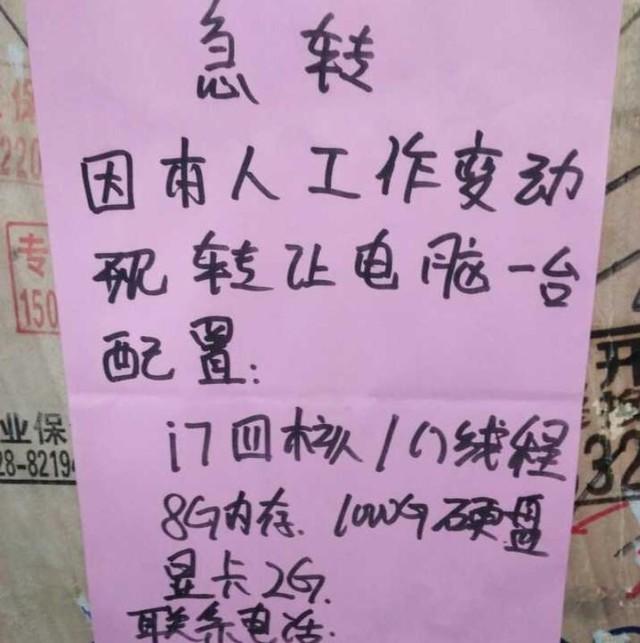 急转
因本人工作变动
现转让电脑一台
配置:
i7四核八线程
8G内存. 1000G硬盘
显卡2G.
联系电话:
保
220
专
150
业保
28-8219
开
32